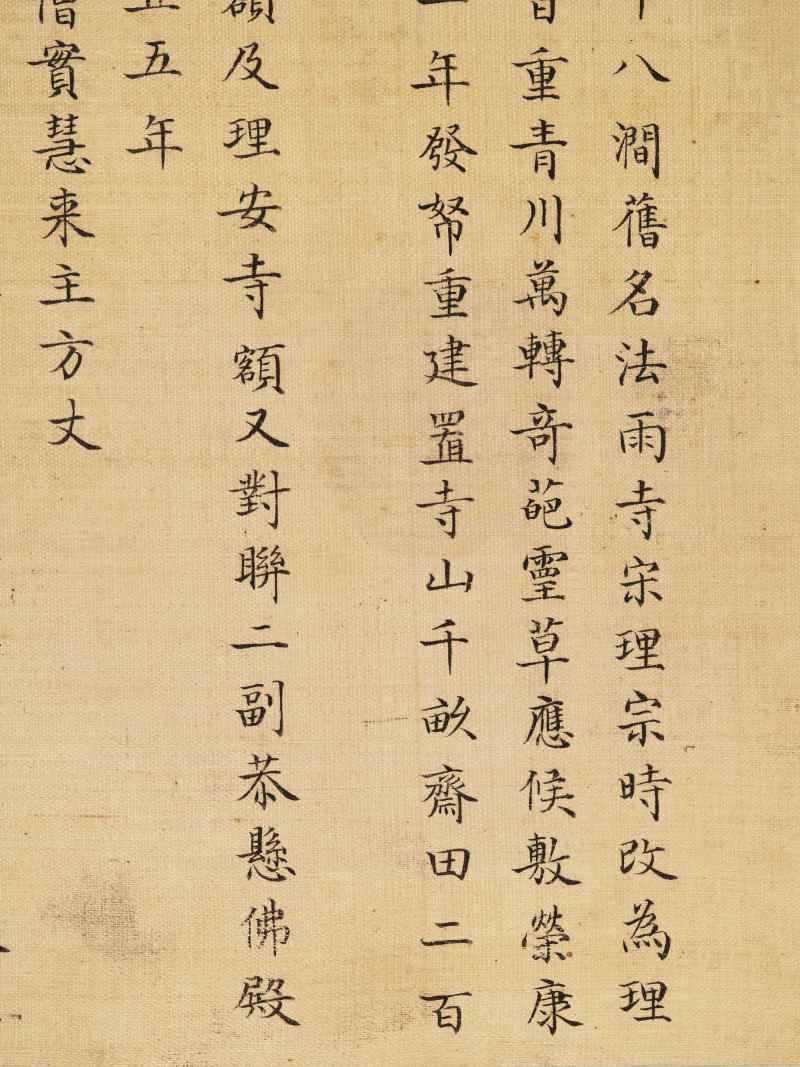 八澗舊名法雨寺宋理宗時改為理
重青川萬轉奇葩靈草應候敷榮康
年發帑重建置寺山千畝齋田二百
額及理安寺額又對聯二副恭懸佛殿
五年
僧實慧来主方丈